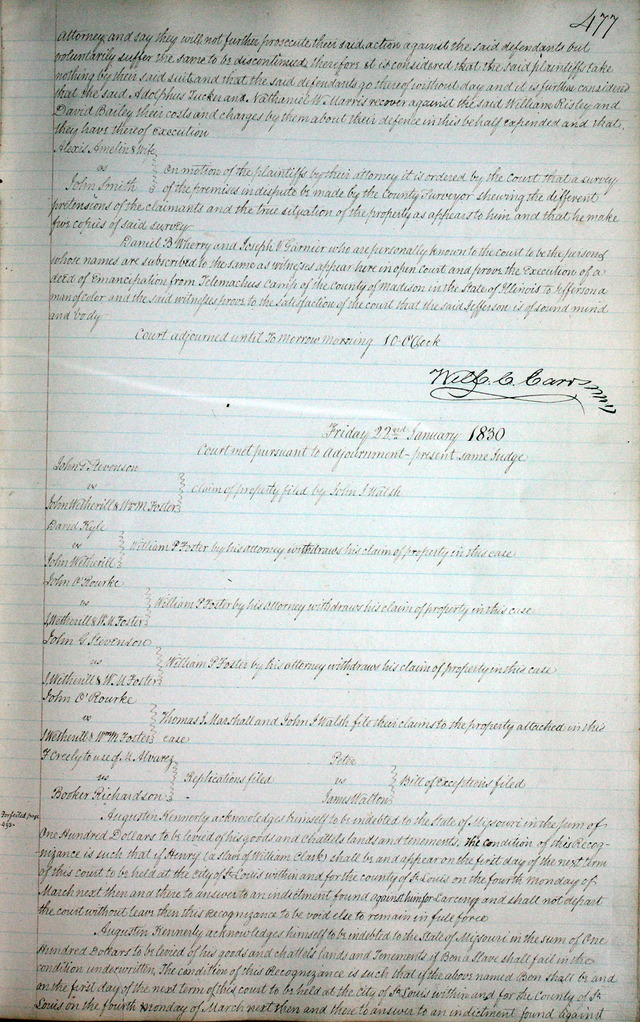 477
Attorney and say they will not further prosecute their said action against the said defendants but
voluntarily suffer the same to be discontinued therefore it is considered that the said plaintiffs take
nothing by their said suit and that the said defendants go thereof without day and it is further considered
that the said Adolphus Tucker and Nathaniel W. Harris recover against the said William Risley and
David Bailey their costs and charges by them about their defence in this behalf expended and that
they have thereof execution
Alexis Amelin & Wife
vs
John Smith
On motion of the plaintiffs by their attorney it is ordered by the court that a survey
of the premises in dispute be made by the County Surveyor shewing the different
pretensions of the claimants and the true situation of the property as appears to him and that he make
four copies of said survey
Daniel B Wherry and Joseph V Garnier who are personally known to the court to be the persons
whose names are subscribed to the same as witnesses appear here in open court and prove the Execution of a
deed of Emancipation from Telemachus Camp of the County of Madison in the State of Illinois to Jefferson a
man of color and the said witnesses prove to the satisfaction of the court that the said Jefferson is of sound mind
and body
Court adjourned until To morrow morning 10 O'Clock
Will. C. Carr
Friday 22nd January 1830
Court met pursuant to Adjournment present same Judge
John G Stevenson
vs
John Wetherill & Wm M Foster
Claim of property filed by John J Walsh
David Kyle
vs
John Wetherill
William P Foster by his attorney withdraws his claim of property in this case
John O'Rourke
vs
J Wetherill & W. M. Foster
William P Foster by his attorney withdraws his claim of property in this case
John G Stevenson
vs
J Wetherill & W. M. Foster
William P Foster by his attorney withdraws his claim of property in this case
John O'Rourke
vs
J Wetherill & Wm M Foster
Thomas J. Marshall and John J Walsh file their claims to the property attached in this
case
F Creely to use of M. Alvarez
vs
Booker Richardson
Replications filed
Peter
vs
James Walton
Bill of Exceptions filed
Augustin Kennerly acknowledges himself to be indebted to the State of Missouri in the sum of
One Hundred Dollars to be levied of his goods and chattels lands and tenements, the condition of this Recog-
nizance is such that if Henry (a slave of William Clark) shall be and appear on the first day of the next term
of this court to be held at the City of St Louis within and for the county of St Louis on the fourth monday of
March next then and there to answer to an indictment found against him for Larceny and shall not depart
the court without leave then this Recognizance to be void else to remain in full force
Augustin Kennerly acknowledges himself to be indebted to the State of Missouri in the sum of One
Hundred Dollars to be levied of his goods and chattels lands and Tenements if Ben a Slave shall fail in the
condition underwritten The condition of this Recognizance is such that if the above named Ben shall be and
on the first day of the next term of this court to be held at the City of St Louis within and for the County of St
Louis on the fourth Monday of March next then and there to answer to an indictment found against